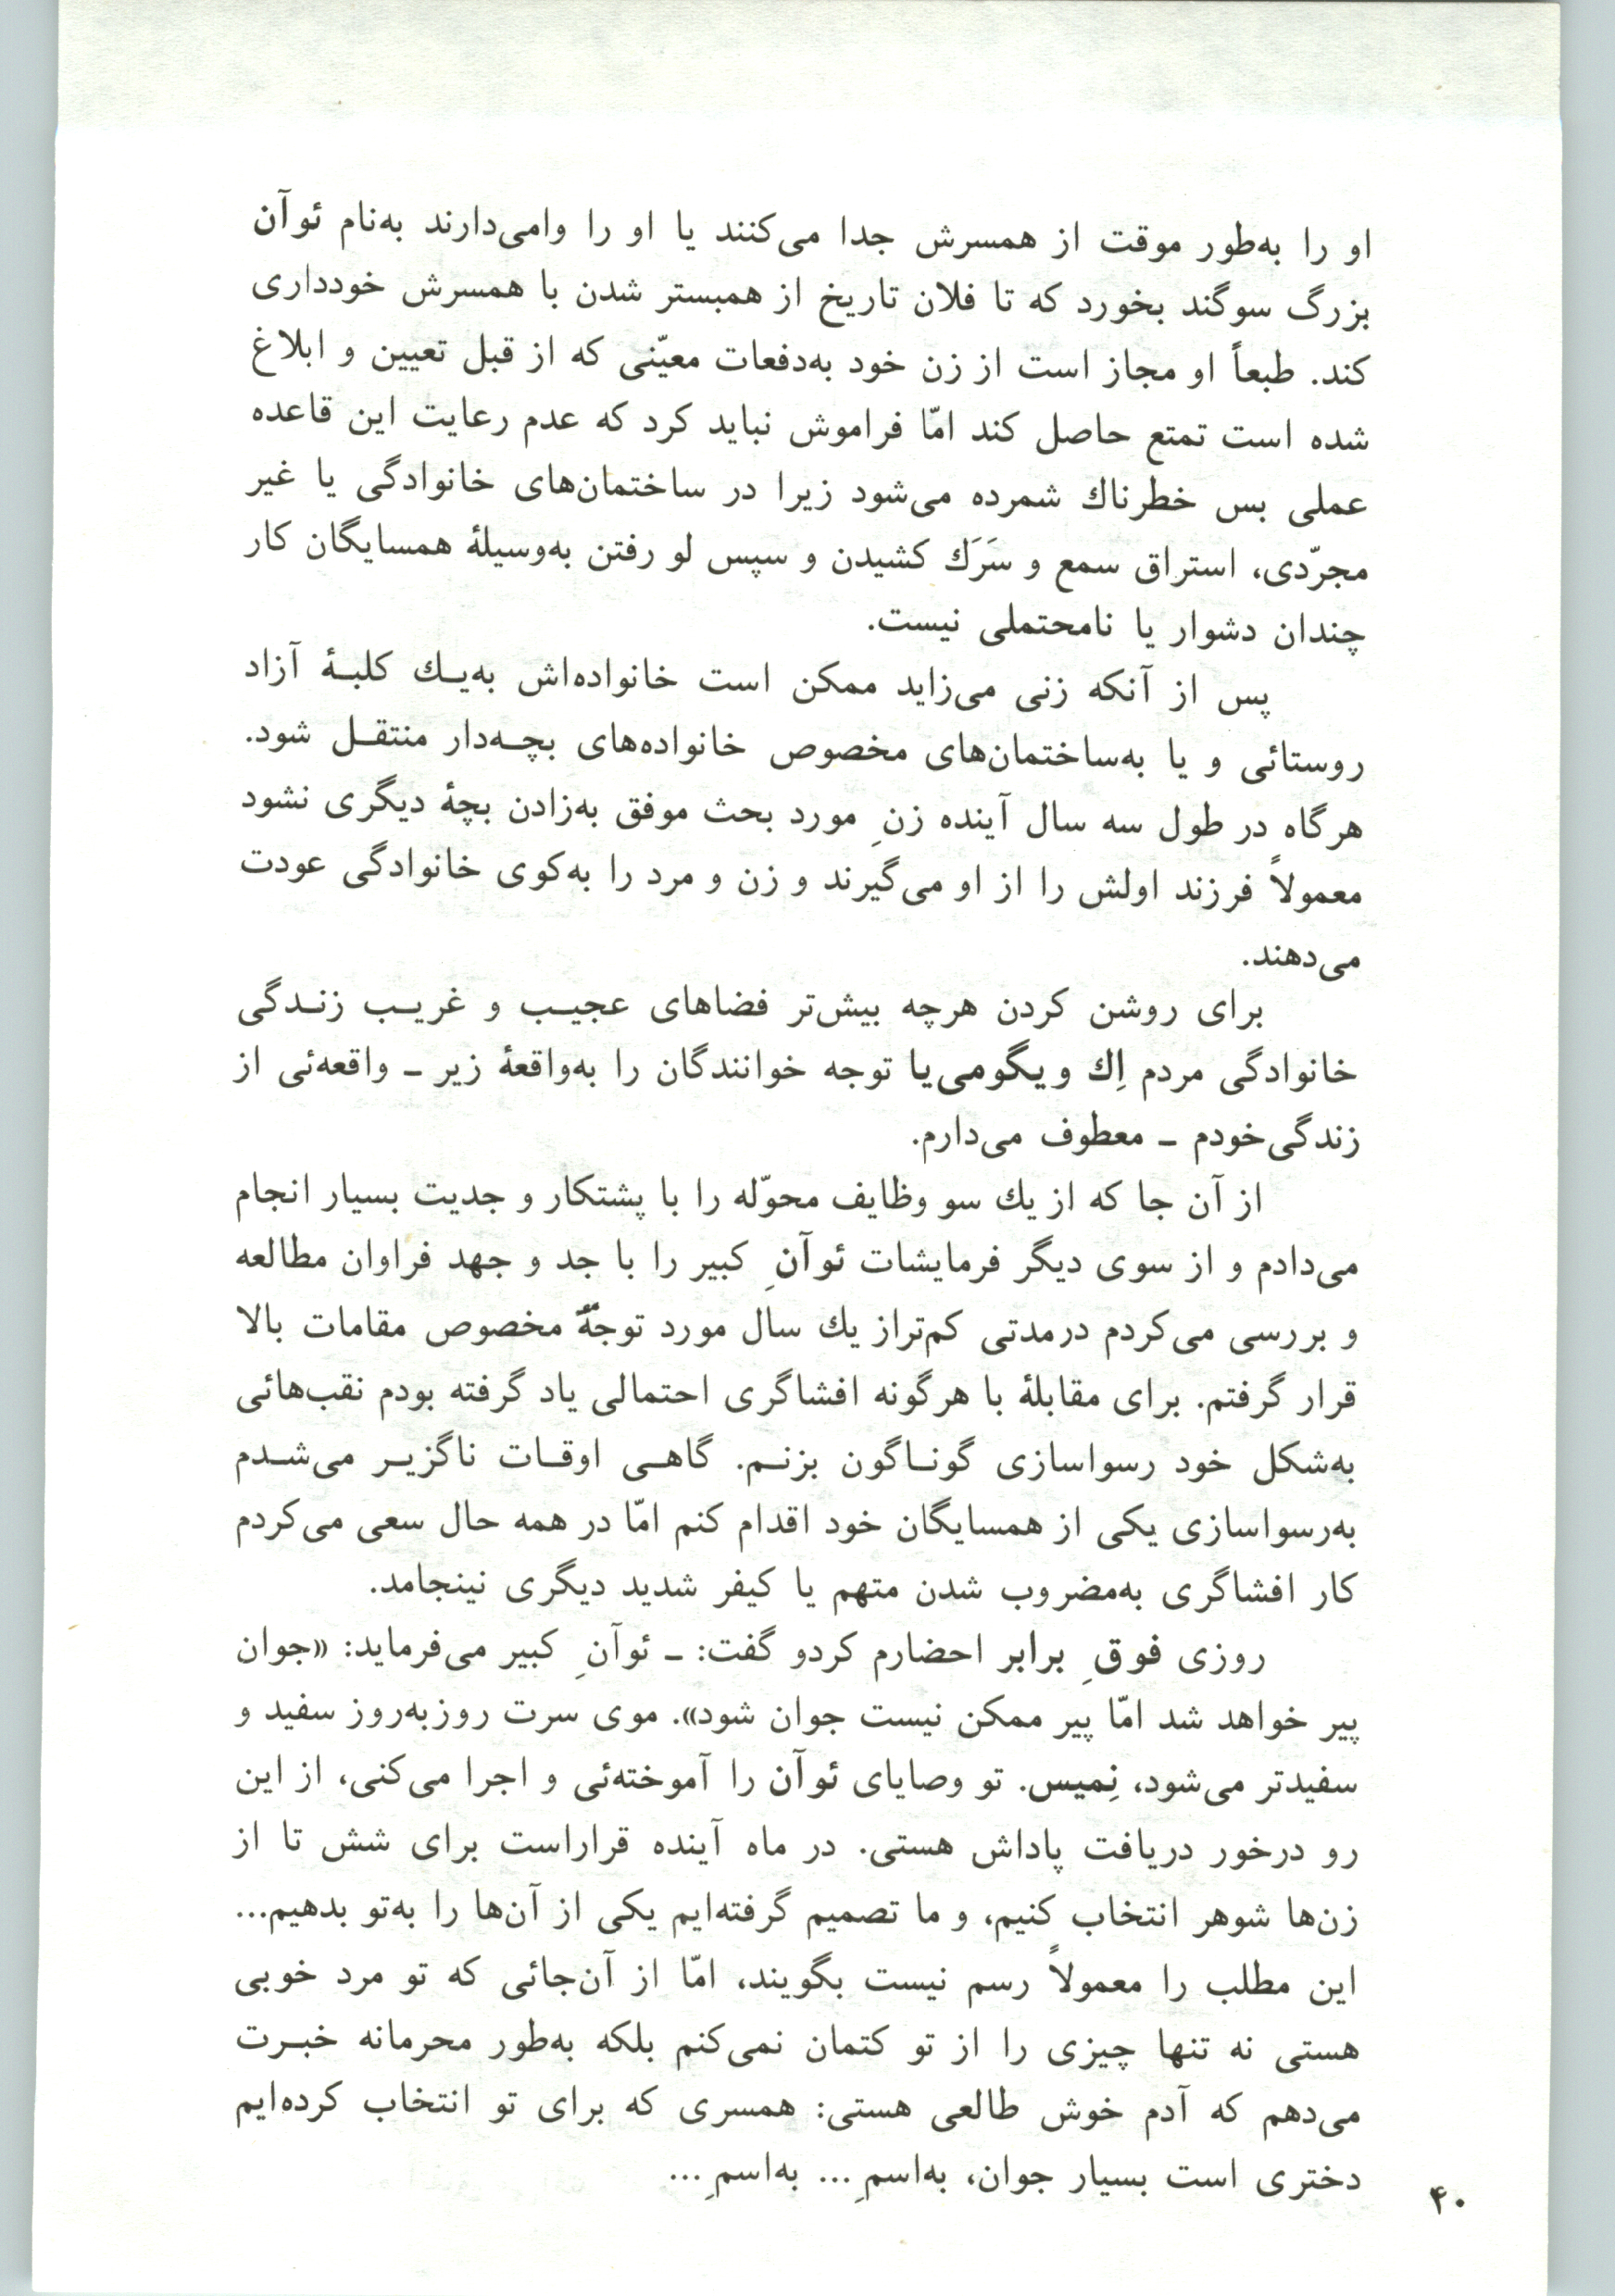 او را به‌طور موقت از همسرش جدا می‌کنند یا او را وامی‌دارند به‌نام ئوآن
بزرگ سوگند بخورد که تا فلان تاریخ از همبستر شدن با همسرش خودداری
کند. طبعاً او مجاز است از زن خود به‌دفعات معیّنی که از قبل تعیین و ابلاغ
شده است تمتع حاصل کند امّا فراموش نباید کرد که عدم رعایت این قاعده
عملی بس خطرناك شمرده می‌شود زیرا در ساختمان‌های خانوادگی یا غیر
مجرّدی، استراق سمع و سَرَك کشیدن و سپس لو رفتن به‌وسیلۀ همسایگان کار
چندان دشوار یا نامحتملی نیست.
پس از آنکه زنی می‌زاید ممکن است خانواده‌اش به‌یـك کلبـۀ آزاد
روستائی و یا به‌ساختمان‌های مخصوص خانواده‌های بچـه‌دار منتقـل شود.
هرگاه در طول سه سال آینده زنِ مورد بحث موفق به‌زادن بچۀ دیگری نشود
معمولاً فرزند اولش را از او می‌گیرند و زن و مرد را به‌کوی خانوادگی عودت
می‌دهند.
برای روشن کردن هرچه بیش‌تر فضاهای عجیـب و غریـب زنـدگی
خانوادگی مردم اِك ویگومی‌یا توجه خوانندگان را به‌واقعۀ زیر ـ واقعه‌ئی از
زندگی‌خودم ـ معطوف می‌دارم.
از آن جا که از یك سو وظایف محوّله را با پشتکار و جدیت بسیار انجام
می‌دادم و از سوی دیگر فرمایشات ئوآنِ کبیر را با جد و جهد فراوان مطالعه
و بررسی می‌کردم درمدتی کم‌تراز یك سال مورد توجهّ مخصوص مقامات بالا
قرار گرفتم. برای مقابلۀ با هرگونه افشاگری احتمالی یاد گرفته بودم نقب‌هائی
به‌شکل خود رسواسازی گونـاگون بزنـم. گاهـی اوقـات ناگزیـر می‌شـدم
به‌رسواسازی یکی از همسایگان خود اقدام کنم امّا در همه حال سعی می‌کردم
کار افشاگری به‌مضروب شدن متهم یا کیفر شدید دیگری نینجامد.
روزی فوقِ برابر احضارم کردو گفت: ـ ئوآنِ کبیر می‌فرماید: «جوان
پیر خواهد شد امّا پیر ممکن نیست جوان شود». موی سرت روزبه‌روز سفید و
سفیدتر می‌شود، نِمیس. تو وصایای ئوآن را آموخته‌ئی و اجرا می‌کنی، از این
رو درخور دریافت پاداش هستی. در ماه آینده قراراست برای شش تا از
زن‌ها شوهر انتخاب کنیم، و ما تصمیم گرفته‌ایم یکی از آن‌ها را به‌تو بدهیم...
این مطلب را معمولاً رسم نیست بگویند، امّا از آن‌جائی که تو مرد خوبی
هستی نه تنها چیزی را از تو کتمان نمی‌کنم بلکه به‌طور محرمانه خبـرت
می‌دهم که آدم خوش طالعی هستی: همسری که برای تو انتخاب کرده‌ایم
دختری است بسیار جوان، به‌اسمِ... به‌اسمِ...
۴۰